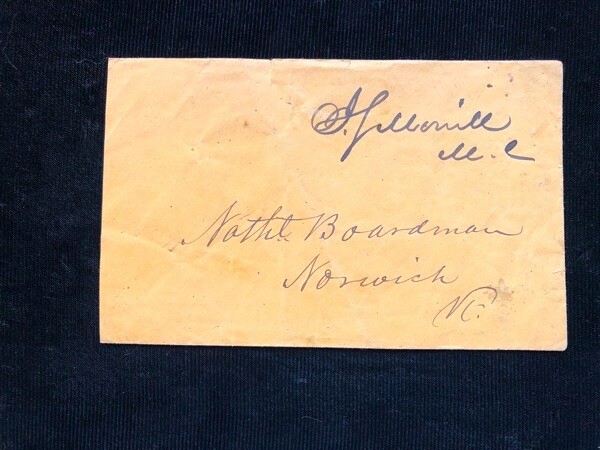 J. S. Morrill
M. C
Nathl. Boardman
Norwich
Vt.